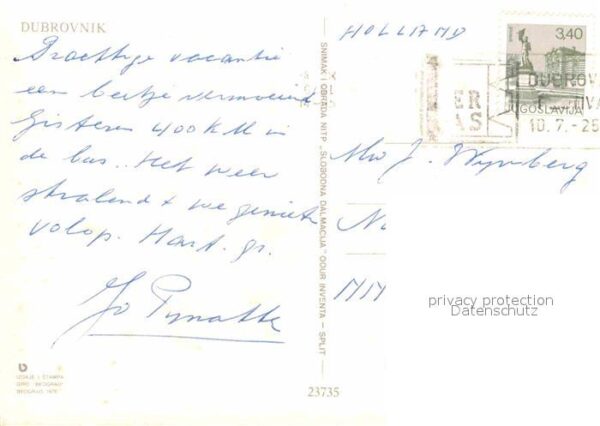 DUBROVNIK
Prachtige vacantie
een beetje vermoeiend
Gisteren 400 KM in
de bus. Het weer
stralend + we genieten
volop. Hart. gr.
Jo
HOLLAND
3,40
JUGOSLAVIJA
DUBROV
TIVA
10.7.-25
ER
AS
Mw J. Wijnberg
N
SNIMAK I OBRADA NITP „SLOBODNA DALMACIJA" OOUR INVENTA — SPLIT
privacy protection
Datenschutz
IZDAJE I ŠTAMPA
BEOGRAD
23735